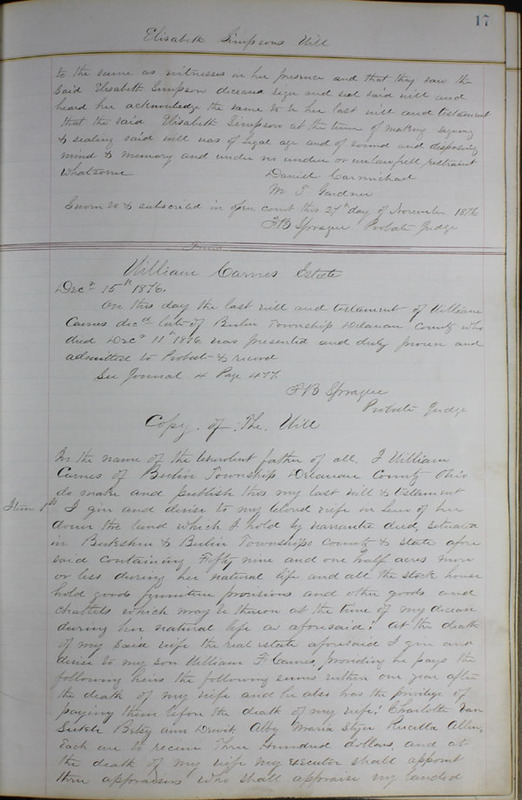 17
Elisabeth Simpsons Will
to the same as witnesses in her presence and that they saw the
Said Elisabeth Simpson deceased sign and seal said will and
heard her acknowledge the same to be her last will and testament
that the said Elisabeth Simpson at the time of making signing
& sealing said will was of legal age and of sound and disposing
mind & memory and under no undue or unlawfull restraint
Whatsoever
Daniel Carmichael
M T Gardner
Sworn to & subscribed in open court this 27th day of November 1876
F B Sprague Probate Judge
William Carnes Estate
Decr 15th 1876.
On this day the last will and testament of William
Carnes decd late of Berlin Township Delaware County who
died Decr 11th 1876 was presented and duly proven and
admitted to Probate & record
See Journal 4 Page 477
F B Sprague
Probate Judge
Copy of The Will
In the name of the benevolent father of all, I William
Carnes of Berlin Township Delaware County Ohio
do make and publish this my last will & testament
Item 1st I give and devise to my beloved wife in lieu of her
dower the land which I hold by warrantee deed, situated
in Berkshire & Berlin Townships County & State afore
said containing Fifty nine and one half acres more
or less during her natural life and all the stock house
hold goods furniture provisions and other goods and
chattels which may be thereon at the time of my decease
during her natural life as aforesaid: at the death
of my said wife the real estate aforesaid I give and
devise to my son William F. Carnes, providing he pays the
following heirs the following sums within one year after
the death of my wife and he also has the privilege of
paying them before the death of my wife: Charlotte Van
Sickle Betsy ann Dewit Abby Maria Rucilla Allen,
Each are to receive Three Hundred dollars, and at
the death of my wife my executor shall appoint
three appraisers who shall appraise my landed